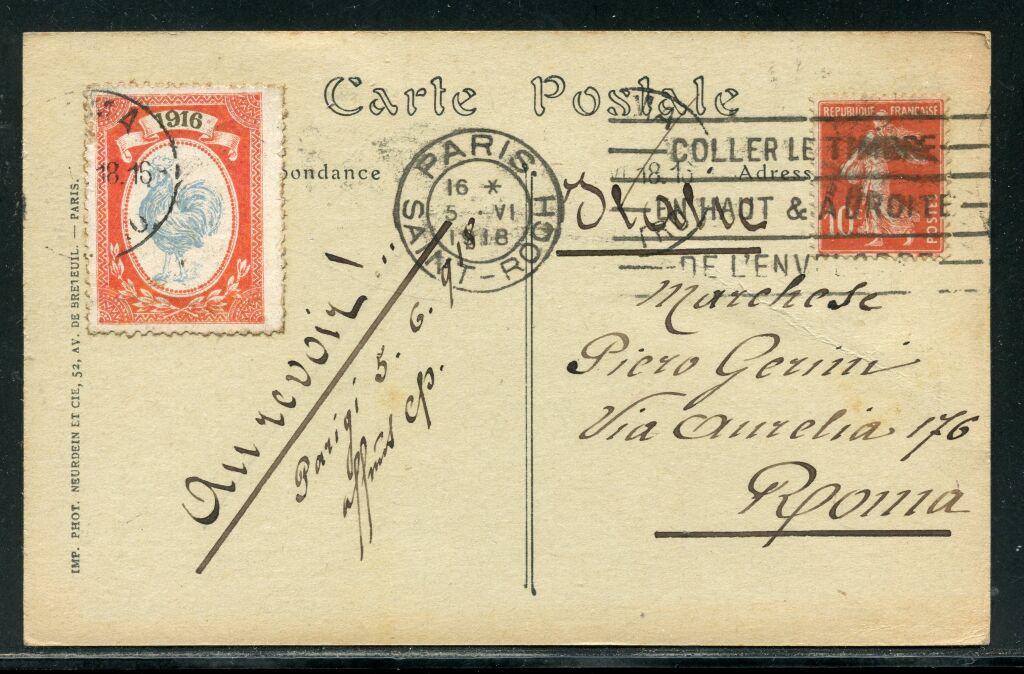 Carte Postale
1916
18.16
PARIS.
16 *
5 VI
1918
SAINT-ROCH
COLLER LE TIMBRE
EN HAUT & À DROITE
DE L'ENV
REPUBLIQUE FRANÇAISE
10
POSTES
pondance
Adress
Marchese
Piero Gerini
Via Aurelia 176
Roma
Au revoir!
Parigi 5. 6. 918
IMP. PHOT. NEURDEIN ET CIE, 52, AV. DE BRETEUIL. — PARIS.